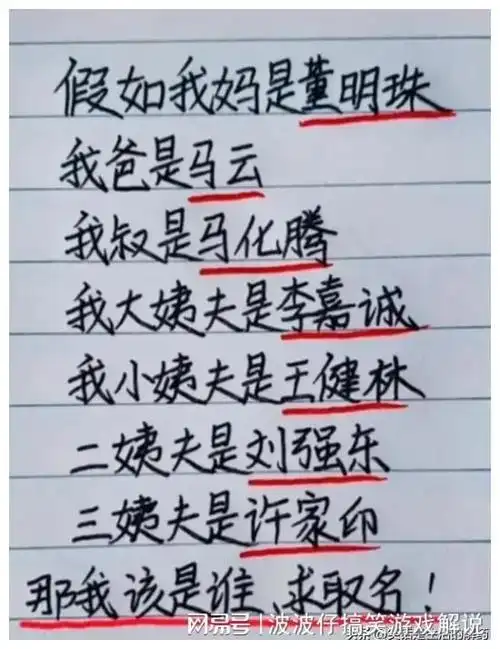 假如我妈是董明珠
我爸是马云
我叔是马化腾
我大姨夫是李嘉诚
我小姨夫是王健林
二姨夫是刘强东
三姨夫是许家印
那我该是谁 求取名!
网易号 | 波波仔搞笑游戏解说